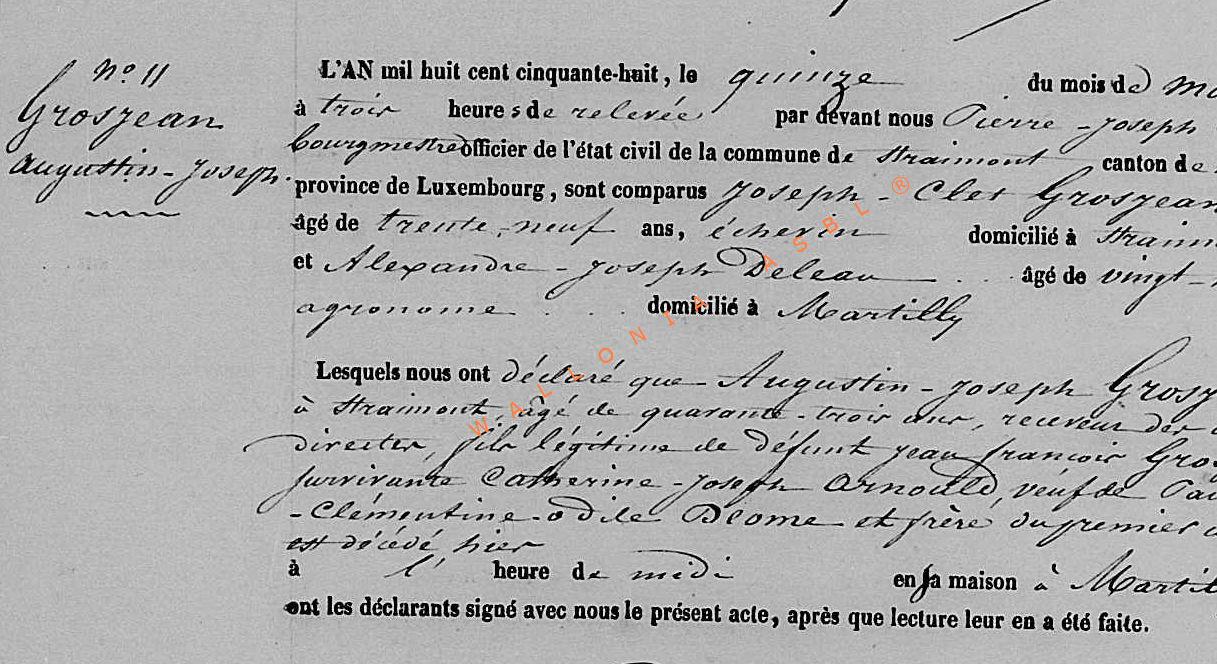 n° 11
Groszean
augustin-Joseph.
L'AN mil huit cent cinquante-huit, le quinze du mois de
à trois heures de relevée par devant nous Pierre-Joseph
bourgmestre officier de l'état civil de la commune de Straimont canton de
province de Luxembourg, sont comparus Joseph-Clet Groszean
âgé de trente-neuf ans, écherin domicilié à
et Alexandre-Joseph Deleau âgé de vingt-
agronome domicilié à Martilly
Lesquels nous ont déclaré que Augustin-Joseph
à Straimont âgé de quarante-trois ans, receveur des
directes, fils légitime de défunt jean françois
survivante Catherine-Joseph Arnould, veuf de
-Clémentine-odile Déome et frère du premier
est décédé hier
à l' heure de midi en sa maison à
ont les déclarants signé avec nous le présent acte, après que lecture leur en a été faite.
WALLONIA ASBL ®